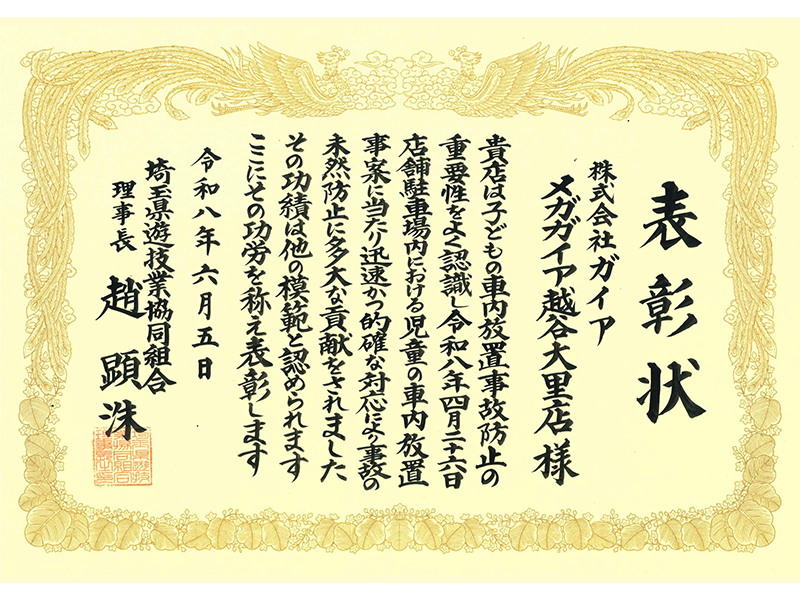 表彰状
株式会社ガイア
メガガイア越谷大里店様
貴店は子どもの車内放置事故防止の
重要性をよく認識し令和八年四月二十六日
店舗駐車場内における児童の車内放置
事案に当たり迅速かつ的確な対応により事故の
未然防止に多大な貢献をされました
その功績は他の模範と認められます
ここにその功労を称え表彰します
令和八年六月五日
埼玉県遊技業協同組合
理事長 趙顕洙